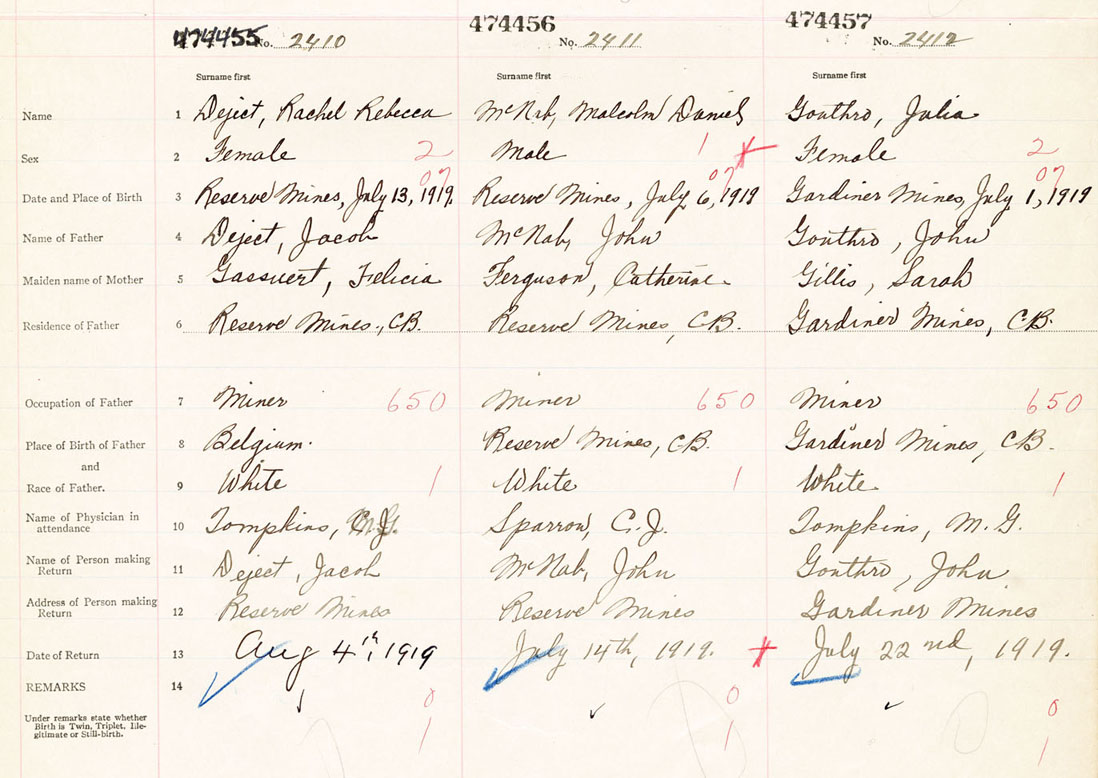 474455 No. 2410 474456 No. 2411 474457 No. 2412
Surname first Surname first Surname first
Name 1 Deject, Rachel Rebecca McNab, Malcolm Daniel Gouthro, Julia
Sex 2 Female 2 Male 1 Female 2
07 07 07
Date and Place of Birth 3 Reserve Mines, July 13, 1919. Reserve Mines, July 6, 1919 Gardiner Mines, July 1, 1919
Name of Father 4 Deject, Jacob McNab, John Gouthro, John
Maiden name of Mother 5 Gassuert, Felicia Ferguson, Catherine Gillis, Sarah
Residence of Father 6 Reserve Mines, C.B. Reserve Mines, C.B. Gardiner Mines, C.B.
Occupation of Father 7 Miner 650 Miner 650 Miner 650
Place of Birth of Father 8 Belgium. Reserve Mines, C.B. Gardiner Mines, C.B.
and
Race of Father. 9 White 1 White 1 White 1
Name of Physician in
attendance 10 Tompkins, M.G. Sparrow, C.J. Tompkins, M.G.
Name of Person making
Return 11 Deject, Jacob McNab, John Gouthro, John
Address of Person making
Return 12 Reserve Mines Reserve Mines Gardiner Mines
Date of Return 13 Aug 4th, 1919 July 14th, 1919. July 22nd, 1919.
REMARKS 14
0 0 0
Under remarks state whether
Birth is Twin, Triplet, Ille-
gitimate or Still-birth.
1 1 1